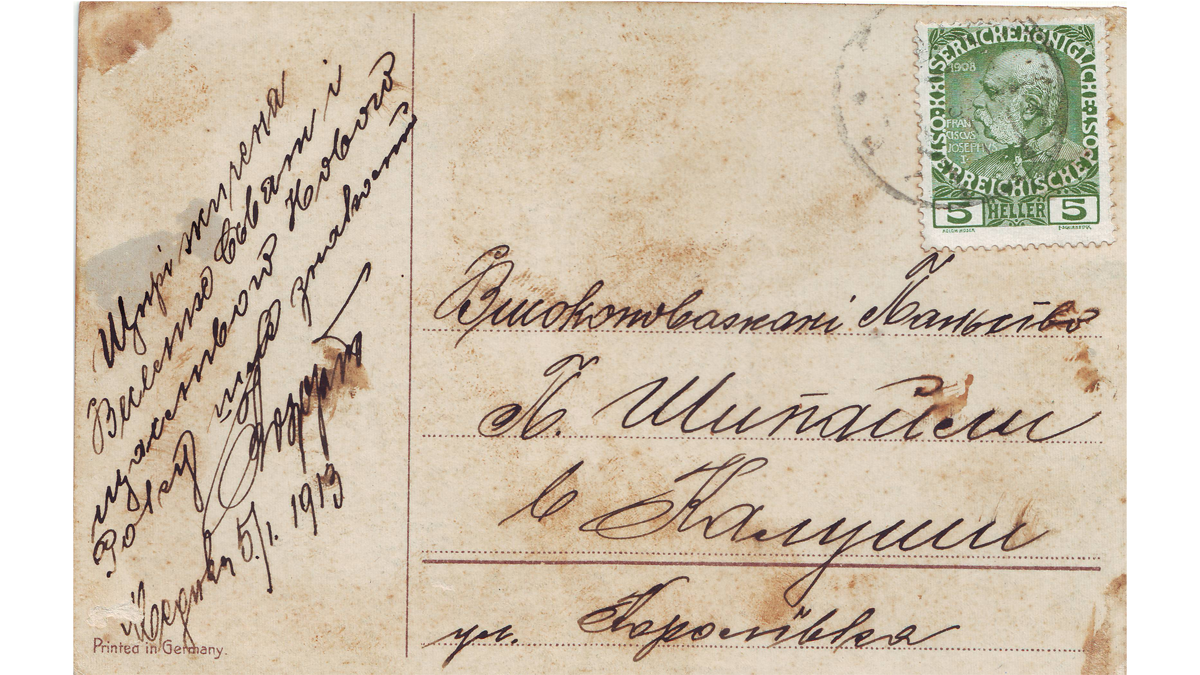 Щирі жиреня
Веселих Сьват і
щасливого Нового
Року шле знакомий
5/1. 1913
Printed in Germany.
KAISERLICHE KÖNIGLICHE ÖSTERREICHISCHE POST
1908
FRAN
CISCVS
JOSEPHVS
I
5 HELLER 5
Високоповажані Паньство
П. Шипайли
в Калуши
ул. Королївка